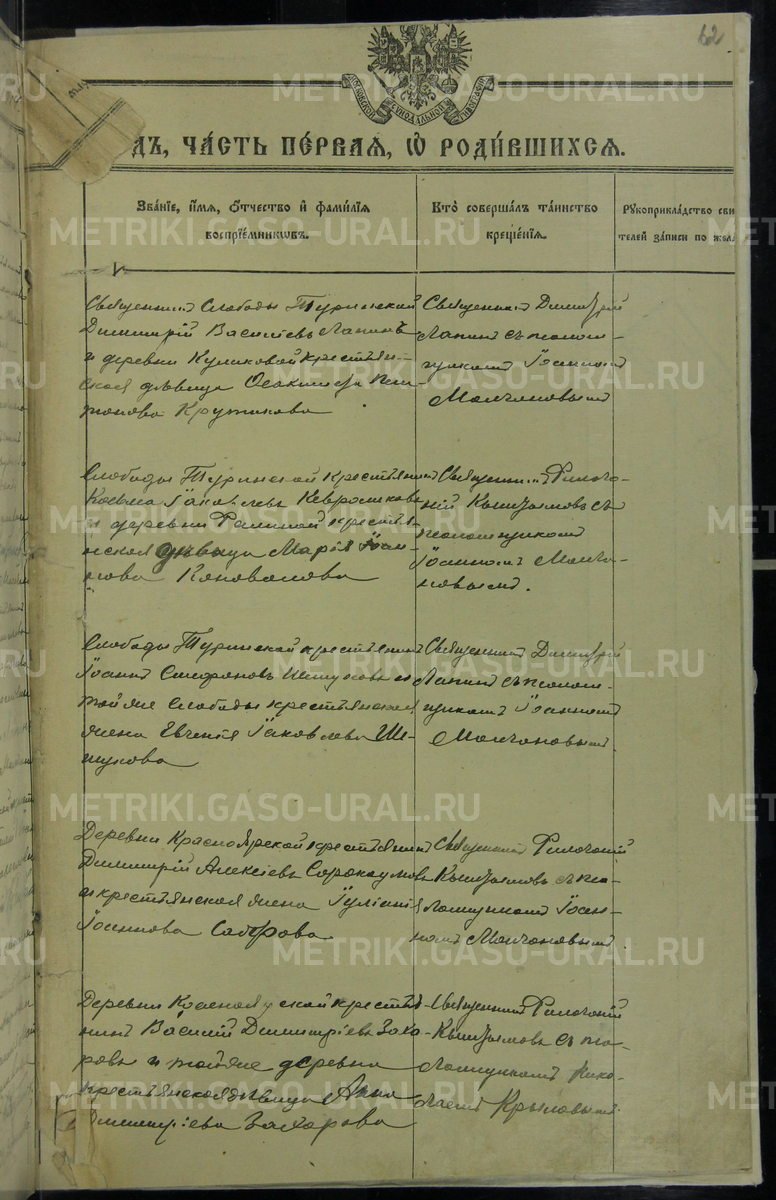 62
МОСКОВСКОЙ СѴНОДАЛЬНОЙ ТИПОГРАФІИ
ДЪ, ЧАСТЬ ПЕ́РВАЯ, Ѡ РОДИ́ВШИХСЯ.
Зва́нїе, и҆́мя, ѻ҆́тчество и҆ фами́лїя воспрїе́мникѡвъ.
Кто̀ соверша́лъ та́инство креще́нїя.
Рꙋкоприкла́дство сви
телей за́писи по жела
Священникъ Слободы Туринской
Димитрій Васильевъ Лапинъ
и деревни Куликовой крестьян-
ская дѣвица
Кружикова
Священникъ Димитрій
Лапинъ съ псалом-
щикомъ Іоанномъ
Молчановымъ
Слободы Туринской крестьянинъ
Косьма Іаковлевъ
и деревни крестья-
нская дѣвица Марія Іоан-
нова Коновалова
Священникъ
съ
псаломщикомъ
Іоанномъ Молча-
новымъ.
Слободы Туринской крестьянинъ
Іоаннъ Стефановъ Шешуковъ и
той же Слободы крестьянская
жена Евгенія Іаковлева Ше-
шукова
Священникъ Димитрій
Лапинъ съ псалом-
щикомъ Іоанномъ
Молчановымъ.
Деревни Красноярской крестьянинъ
Димитрій Алексіевъ Сорокоумовъ
и крестьянская жена Іуліанія
Іоаннова
Священникъ
съ пса-
ломщикомъ Іоан-
номъ Молчановымъ.
Деревни Красноярской крестья-
нинъ Василій Димитріевъ Заха-
ровъ и той же деревни
крестьянская дѣвица Анна
Димитріева Захарова
Священникъ
съ пса-
ломщикомъ Нико-
лаемъ Крыловымъ
METRIKI.GASO-URAL.RU